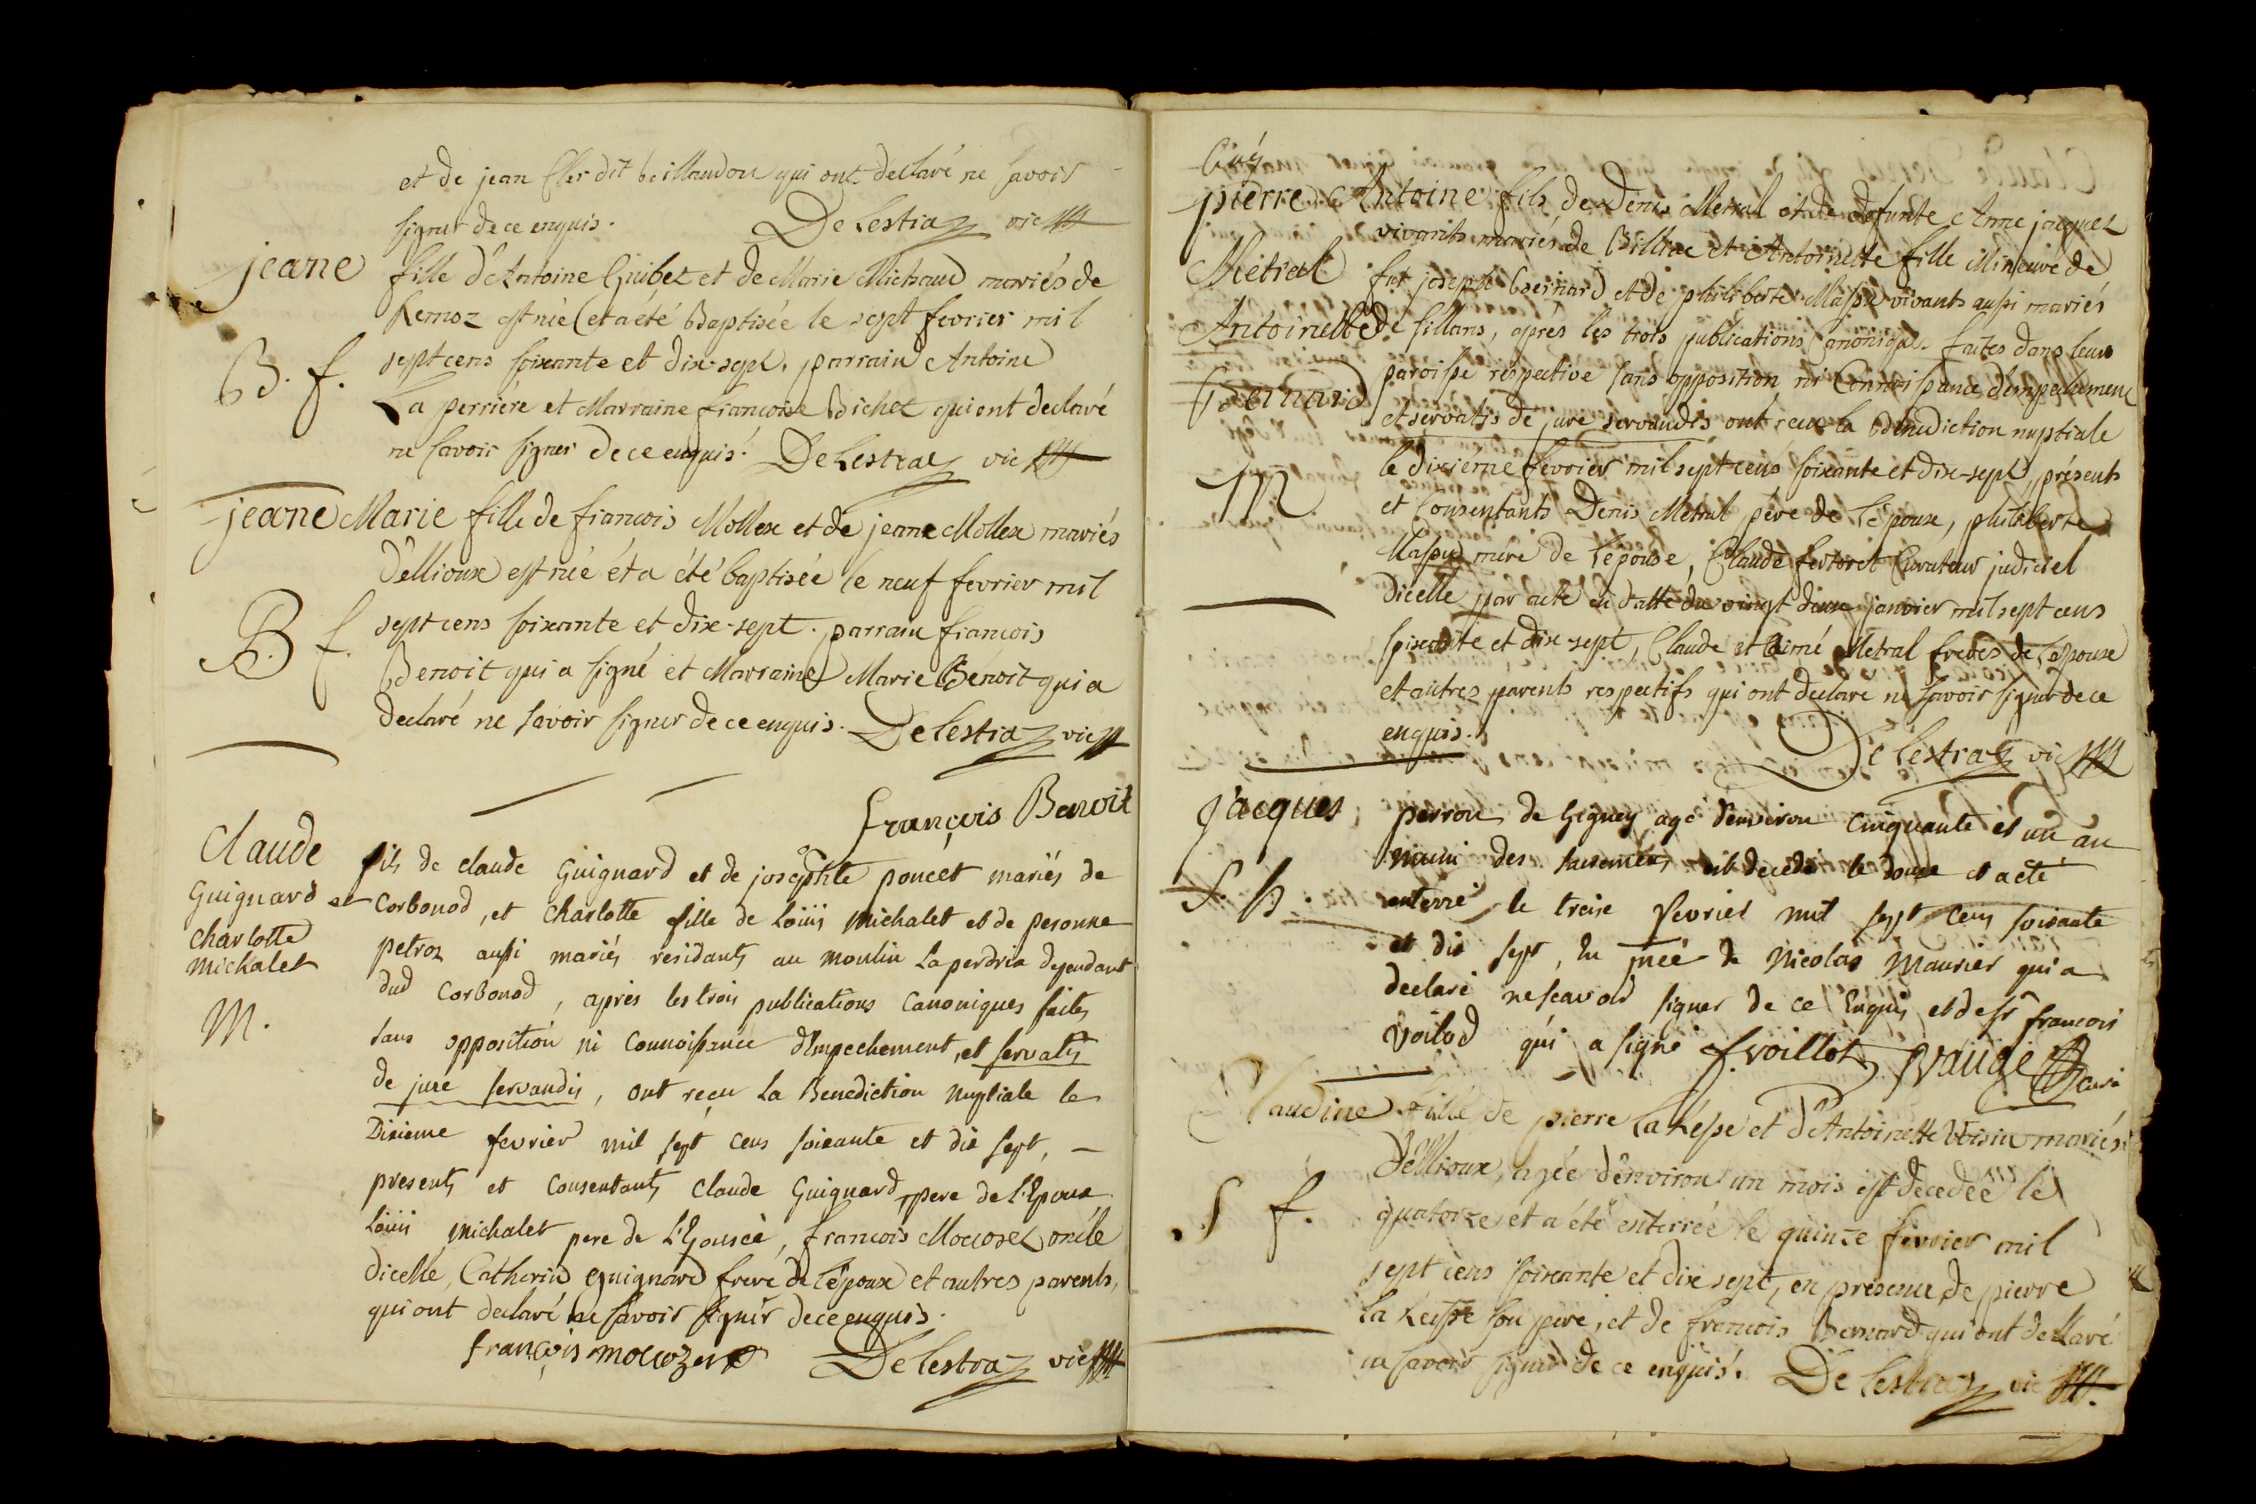 et de jean Cler dit beillandon qui ont declaré ne savoir
signer de ce enquis. De Lestraz vic
jeane fille d'Antoine Guibez et de Marie Michaud mariés de
Remoz est née et a été Baptisée le sept fevrier mil
B. f. sept cens soixante et dix-sept. parrain Antoine
La perriére et Marraine francoise Bichet qui ont declaré
ne savoir signer de ce enquis. De Lestraz vic
jeane Marie fille de francois Mollex et de jeane Mollex mariés
D'ellioux est née et a été baptisée le neuf fevrier mil
B. f. sept cens soixante et dix-sept. parrain francois
Benoit qui a signé et Marraine Marie Benoit qui a
declaré ne savoir signer de ce enquis. De Lestraz vic
françois Benoit
Claude fils de claude Guignard et de josephte poncet mariés de
Guignard et Corbonod, et charlotte fille de Loüis Michalet et de peronne
charlotte petroz aussi mariés residants au moulin Laperdrix dependant
michalet
dud Corbonod, après les trois publications canoniques faites
M. sans opposition ni connoissance d'Empechement, et servatis
de jure servandis, ont reçu La Benediction nuptiale le
Dixieme fevrier mil sept cens soixante et dix sept, —
presents et consentants claude Guignard pere de l'Epoux
Loüis michalet pere de L'Epousée, francois Mocozet oncle
dicelle, Catherin guignard frere de l'époux et autres parents,
qui ont declaré ne savoir signer de ce enquis.
françois mocozet De Lestraz vic
pierre Antoine fils de Denis Metral et de defunte Anne jacquez
vivants mariés de Billiac et Antoinette fille Mineure de
Metral fut joseph Bernard et de philiberte Massu vivants aussi mariés
Antoinette de sillans, aprés les trois publications canoniques faites dans leurs
paroisse respective sans opposition ni Connoissance d'empechement
Bernard et servatis de jure servandis ont reçu la Benediction nuptiale
le dixiéme fevrier mil sept cens soixante et dix-sept, présents
M. et Consentants Denis Metral pére de l'époux, philiberte
Massu mére de l'epouse, Claude fertoret Curateur judiciel
Dicelle par acte en datte du vingt deux janvier mil sept cens
soixante et dix-sept, Claude et Aimé Metral freres de l'époux
et autres parents respectifs qui ont declaré ne savoir signer de ce
enquis. De Lestraz vic
jacques perrou de Gigney agé denviron cinquante et un an
muni des sacremets est decedé le douze et a eté
S. h. enterré le treize fevrier mil sept cens soixante
et dix sept, en pncé de Nicolas Maurier qui a
declaré ne scavoir signer de ce Enquis et de sr francois
Voilod qui a signé f. voillot Vauge curé
Claudine fille de pierre La Leysse et d'Antoinette Voisin mariés
D'ellioux, agée d'environ un mois est decedée le
S f. quatorze et a été enterrée le quinze fevrier mil
sept cens soixante et dix sept, en présence de pierre
La Leysse son pere, et de francois Bernard qui ont declaré
ne savoir signer de ce enquis. De Lestraz vic